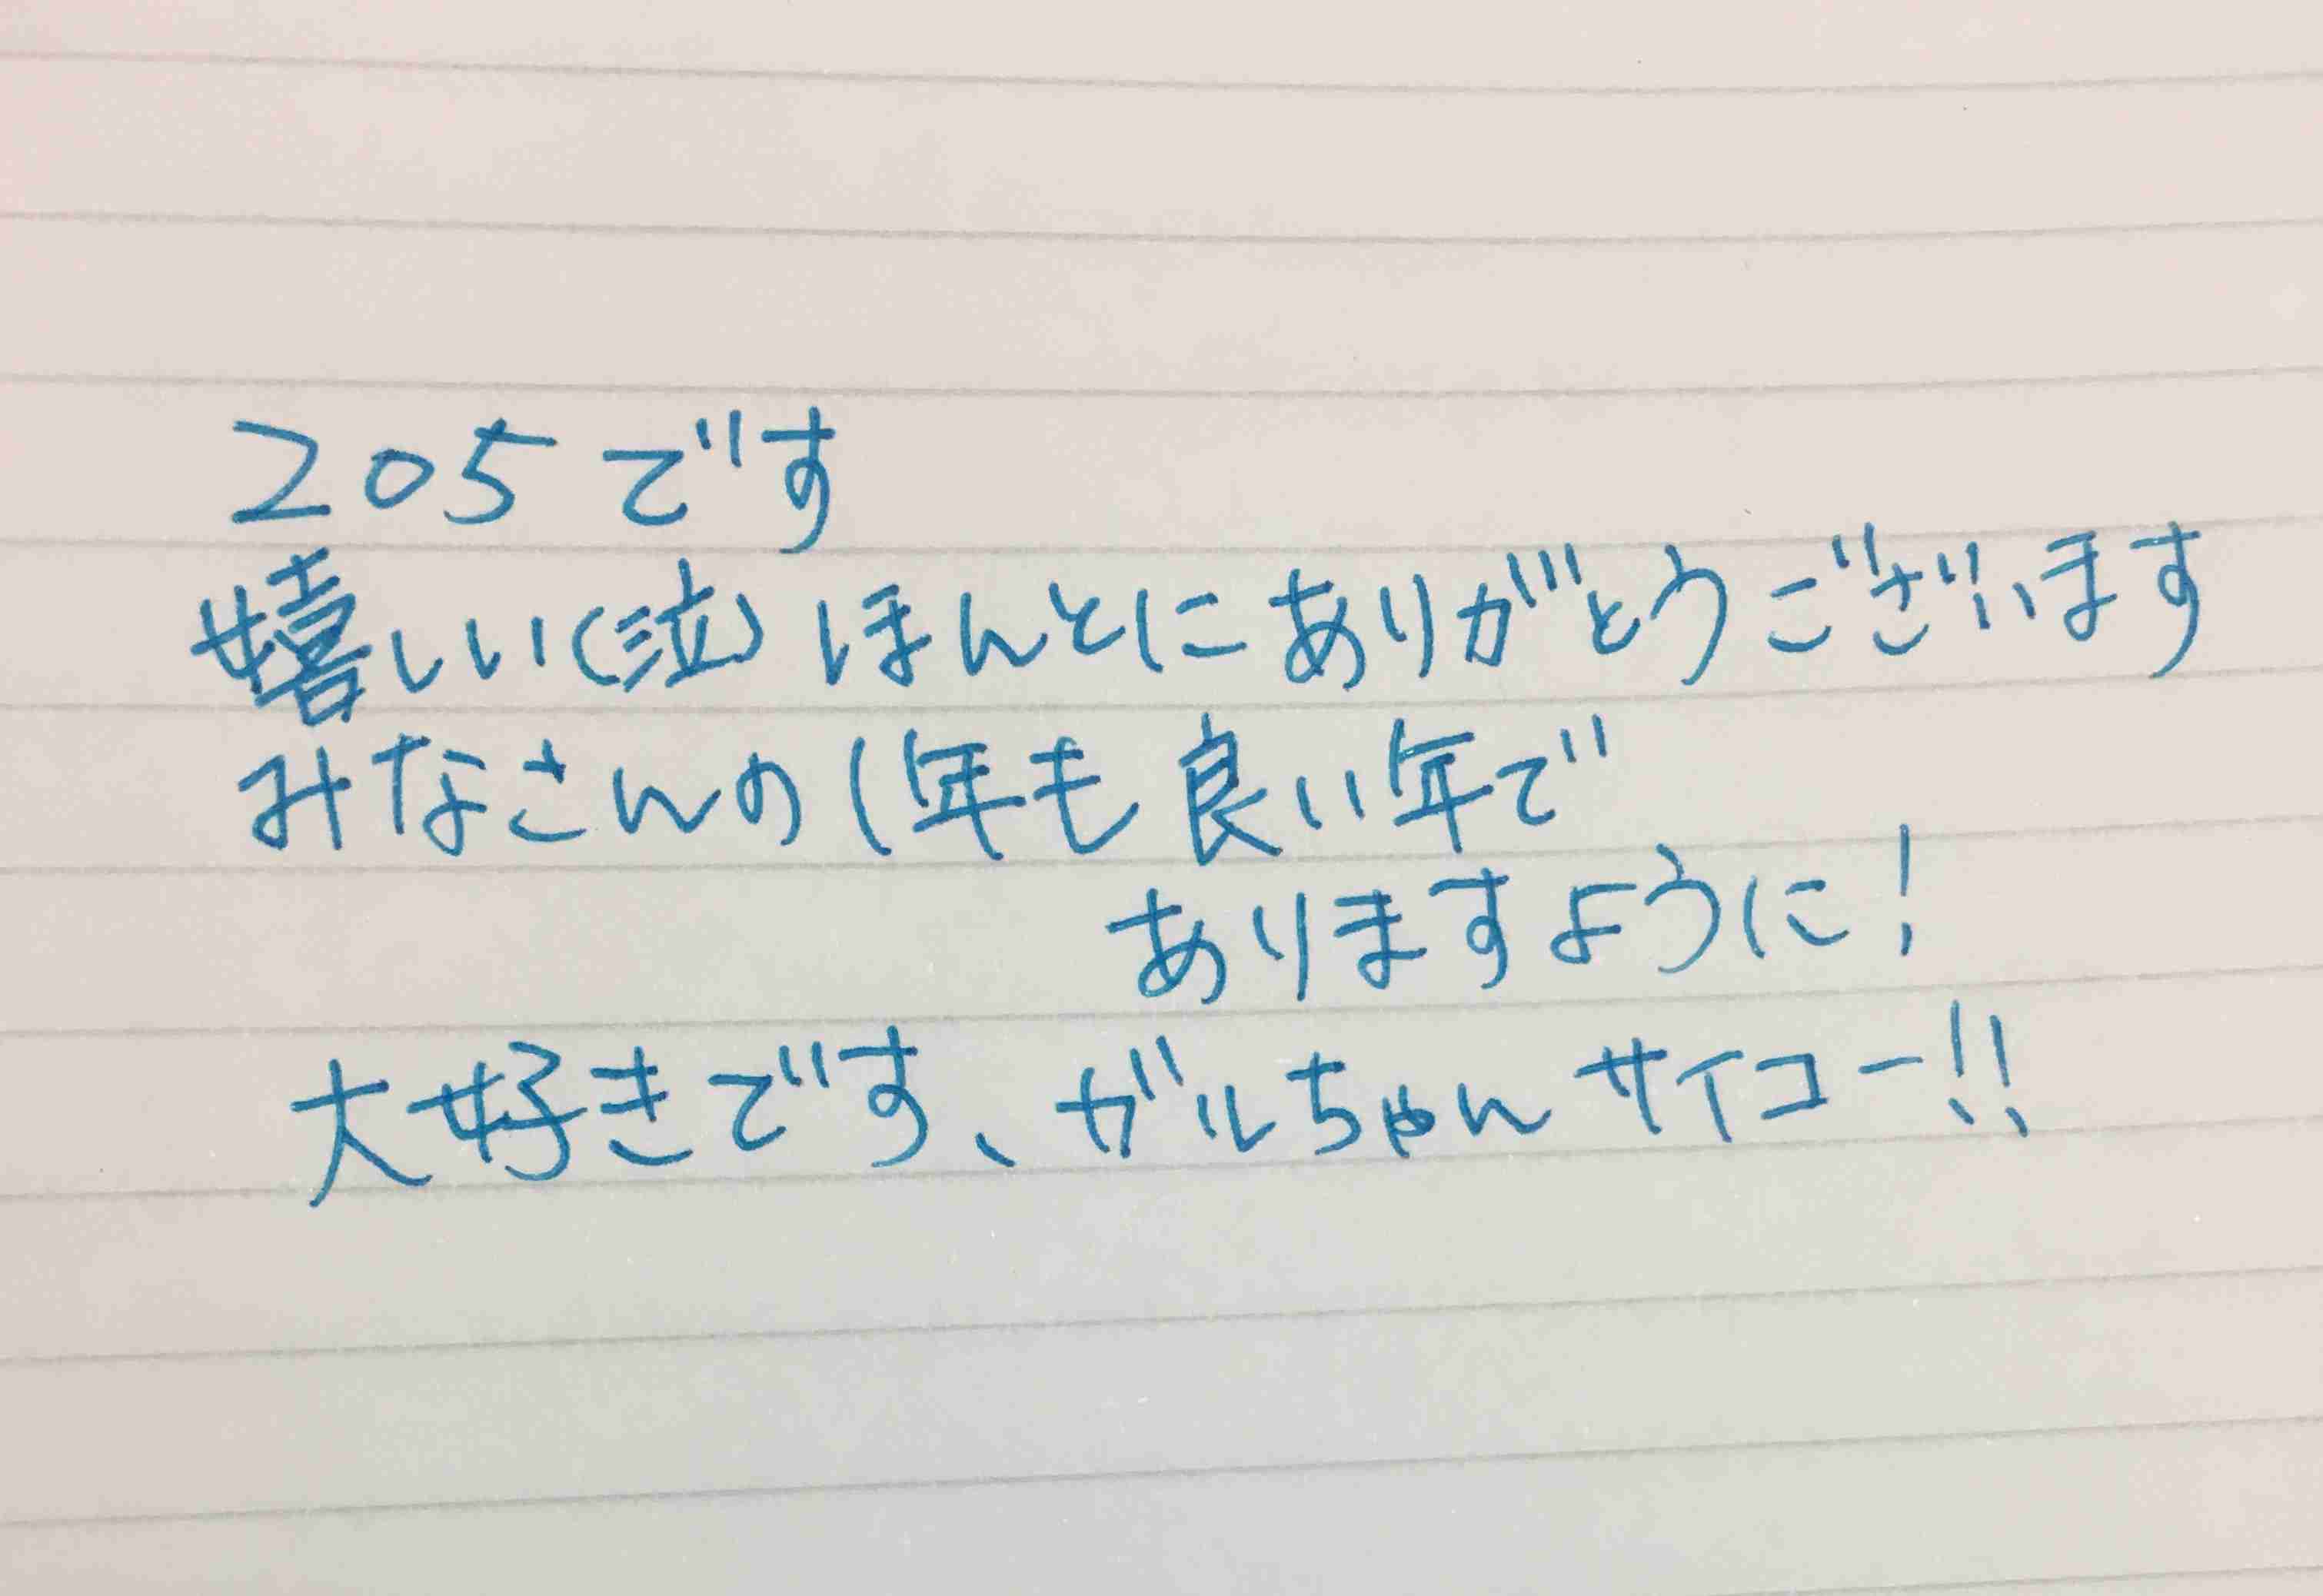 205です
嬉しい(泣)ほんとにありがとうございます
みなさんの1年も良い年で
ありますように!
大好きです、ガルちゃんサイコー!!